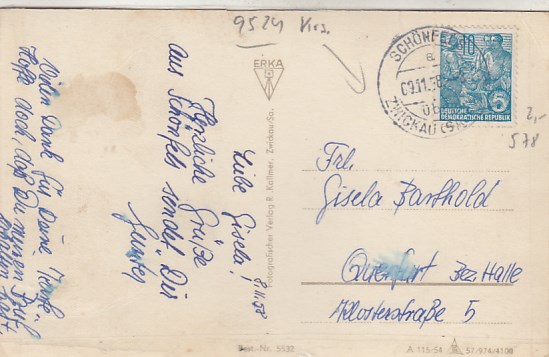 9524
ERKA
SCHÖNFELS
09.11.58
ZWICKAU (SACHS)
10
DEUTSCHE
DEMOKRATISCHE REPUBLIK
2,-
578
Liebe Gisela!
8.11.58
Herzliche Grüße
aus Schönfels sendet Dir
Gunter
Vielen Dank für Deine Karte
Hoffe doch, daß Du meinen Brief
erhalten hast
Fotografischer Verlag R. Kallmer, Zwickau-Sa.
Frl.
Gisela Barthold
Querfurt Bez. Halle
Klosterstraße 5
Best.-Nr. 5532
A 115/54 57/974/4108